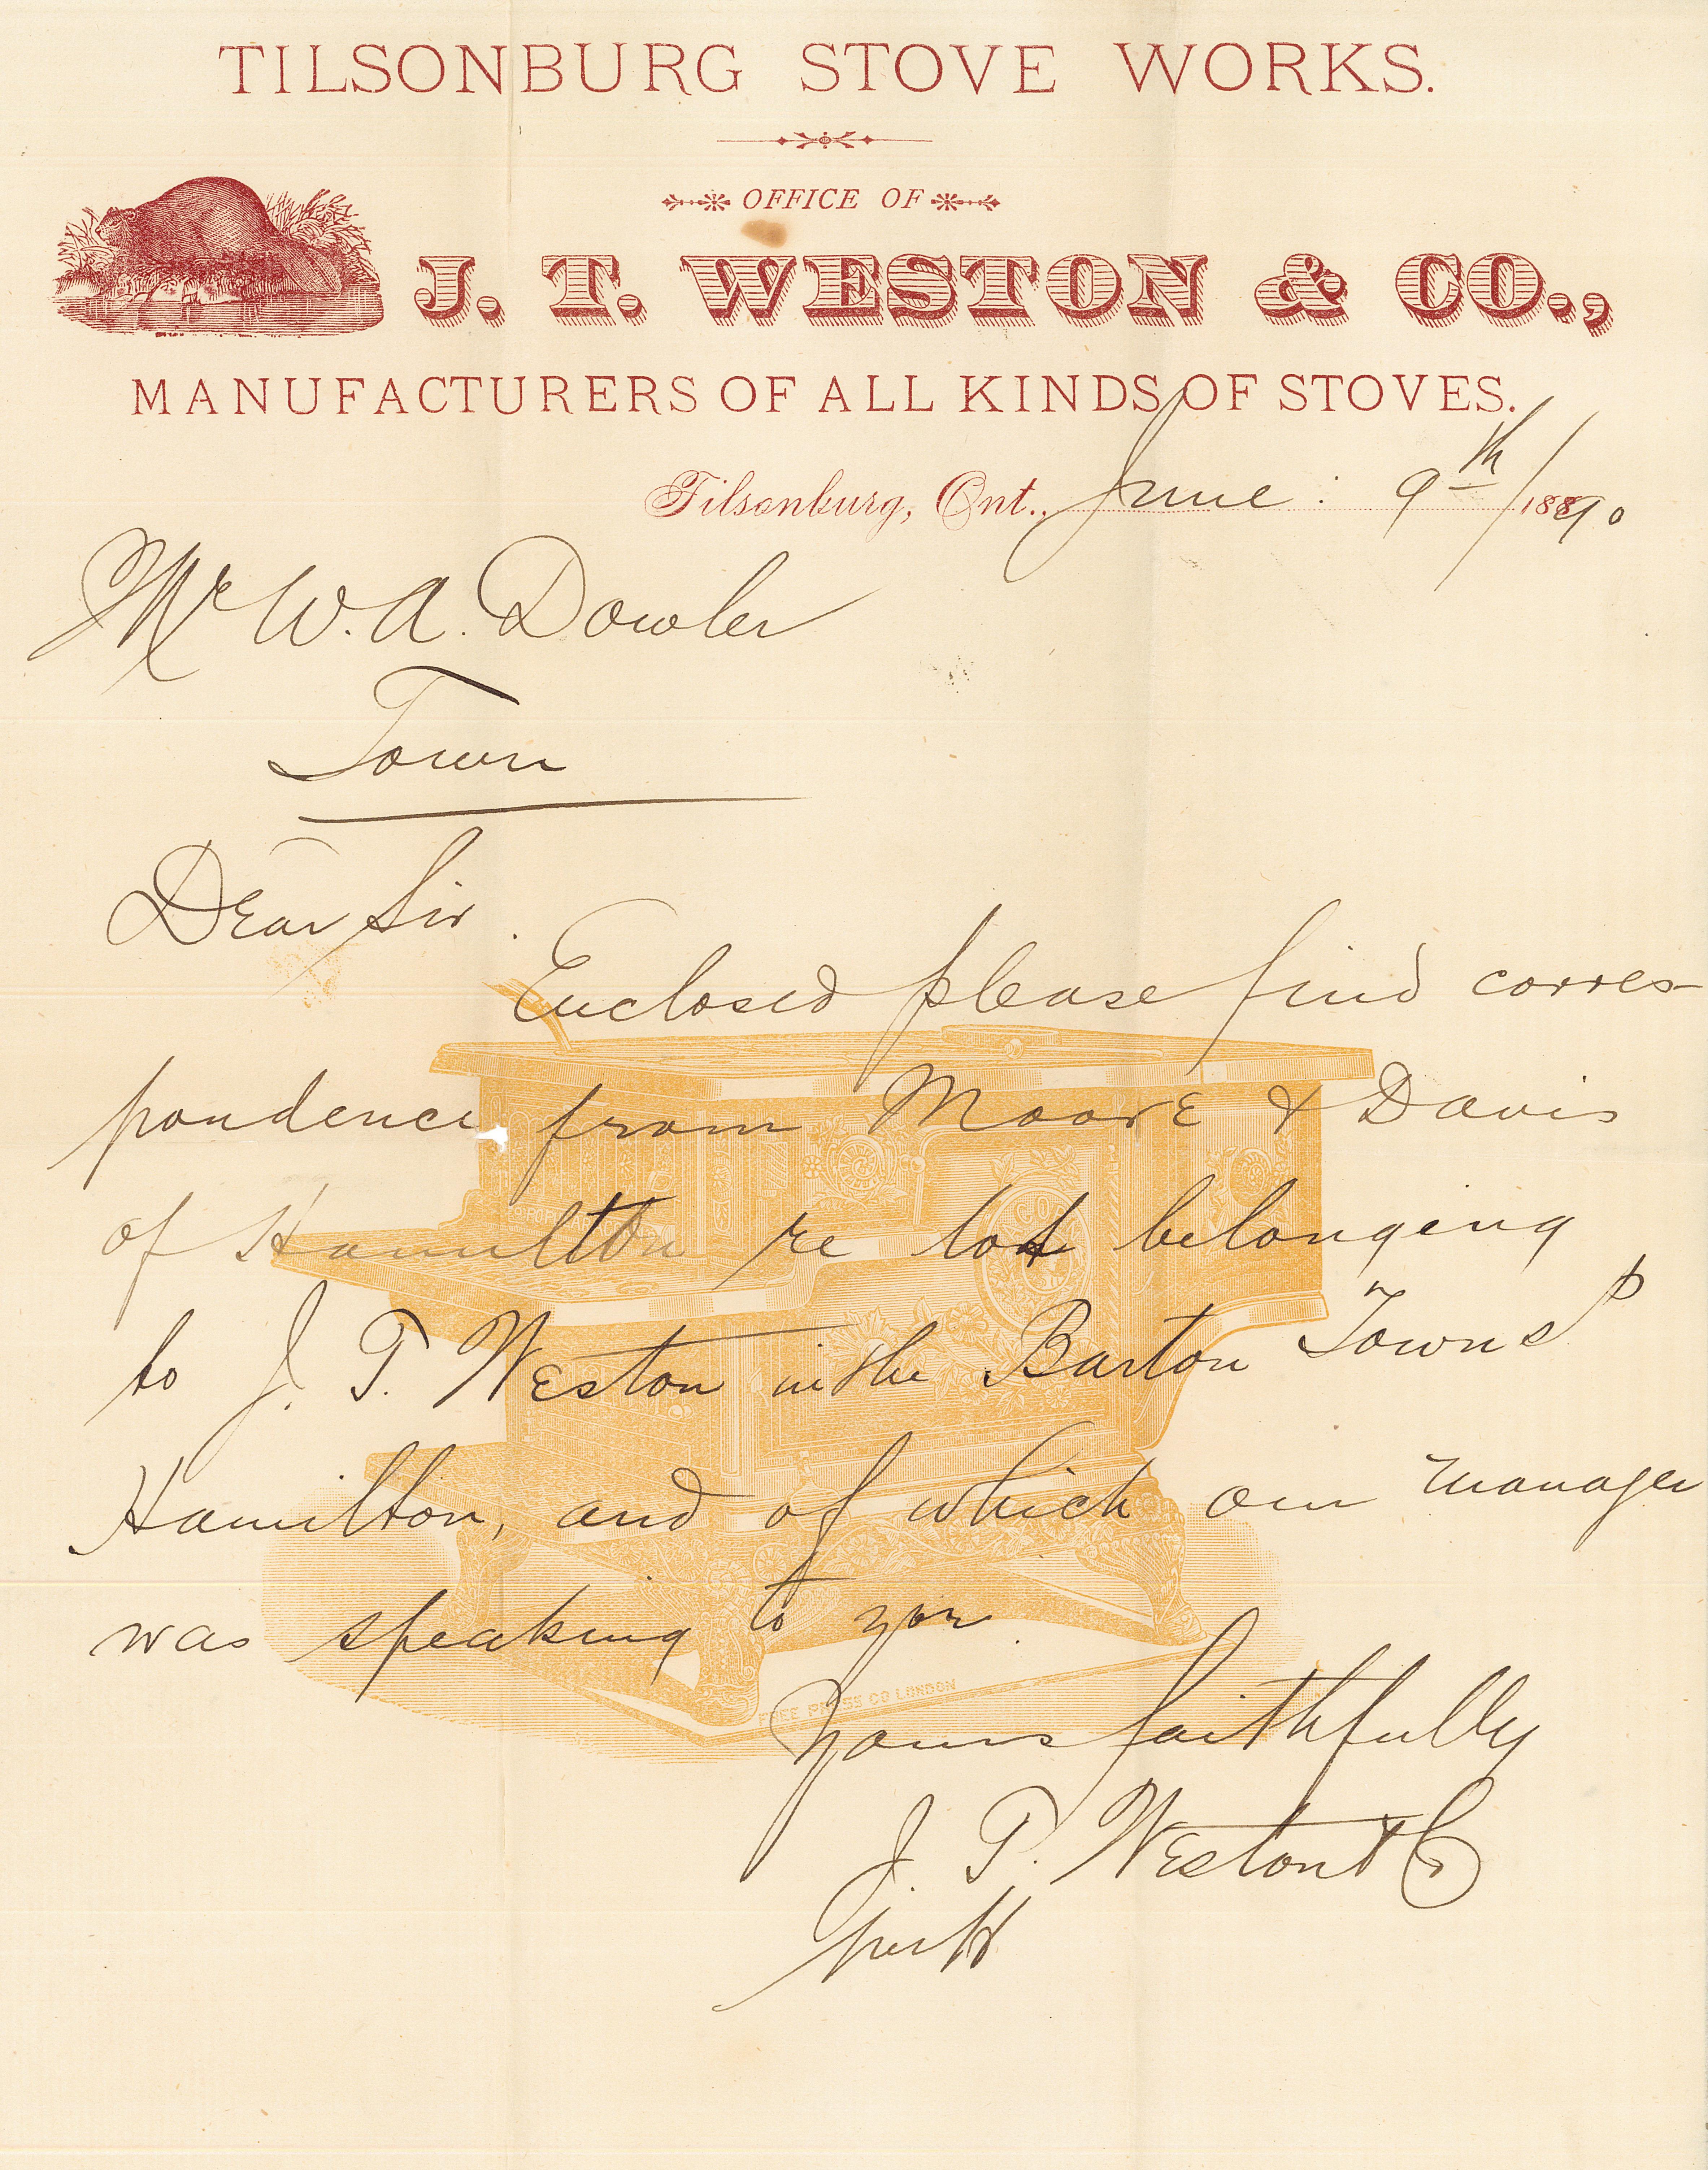 TILSONBURG STOVE WORKS.
OFFICE OF
J. T. WESTON & CO.,
MANUFACTURERS OF ALL KINDS OF STOVES.
Tilsonburg, Ont., June: 9th/1890
Mr W. A. Dowler
Town
Dear Sir.
Enclosed please find corres-
pondence from Moore & Davis
of Hamilton re lot belonging
to J. T. Weston in the Barton Townsp
Hamilton, and of which our manager
was speaking to you.
FREE PRESS CO LONDON
Yours faithfully
J. T. Weston & Co
per H